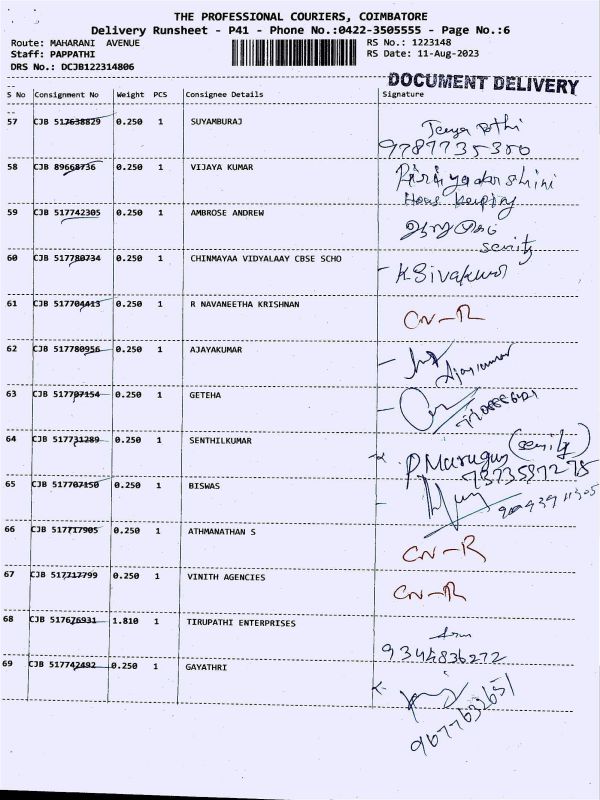 THE PROFESSIONAL COURIERS, COIMBATORE
Delivery Runsheet - P41 - Phone No.:0422-3505555 - Page No.:6
Route: MAHARANI AVENUE RS No.: 1223148
Staff: PAPPATHI RS Date: 11-Aug-2023
DRS No.: DCJB122314806
DOCUMENT DELIVERY
S No Consignment No Weight PCS Consignee Details Signature
57 CJB 517638829 0.250 1 SUYAMBURAJ
9787735380
58 CJB 89668736 0.250 1 VIJAYA KUMAR Piriyadarshini
59 CJB 517742305 0.250 1 AMBROSE ANDREW
60 CJB 517780734 0.250 1 CHINMAYAA VIDYALAAY CBSE SCHO K Sivakumar
61 CJB 517704413 0.250 1 R NAVANEETHA KRISHNAN CN-R
62 CJB 517780956 0.250 1 AJAYAKUMAR Ajaykumar
63 CJB 517707154 0.250 1 GETEHA
64 CJB 517731289 0.250 1 SENTHILKUMAR P. Murugan
65 CJB 517707150 0.250 1 BISWAS
66 CJB 517717905 0.250 1 ATHMANATHAN S CN-R
67 CJB 517717799 0.250 1 VINITH AGENCIES CN-R
68 CJB 517676931 1.810 1 TIRUPATHI ENTERPRISES
9344836272
69 CJB 517742492 0.250 1 GAYATHRI
9677632651